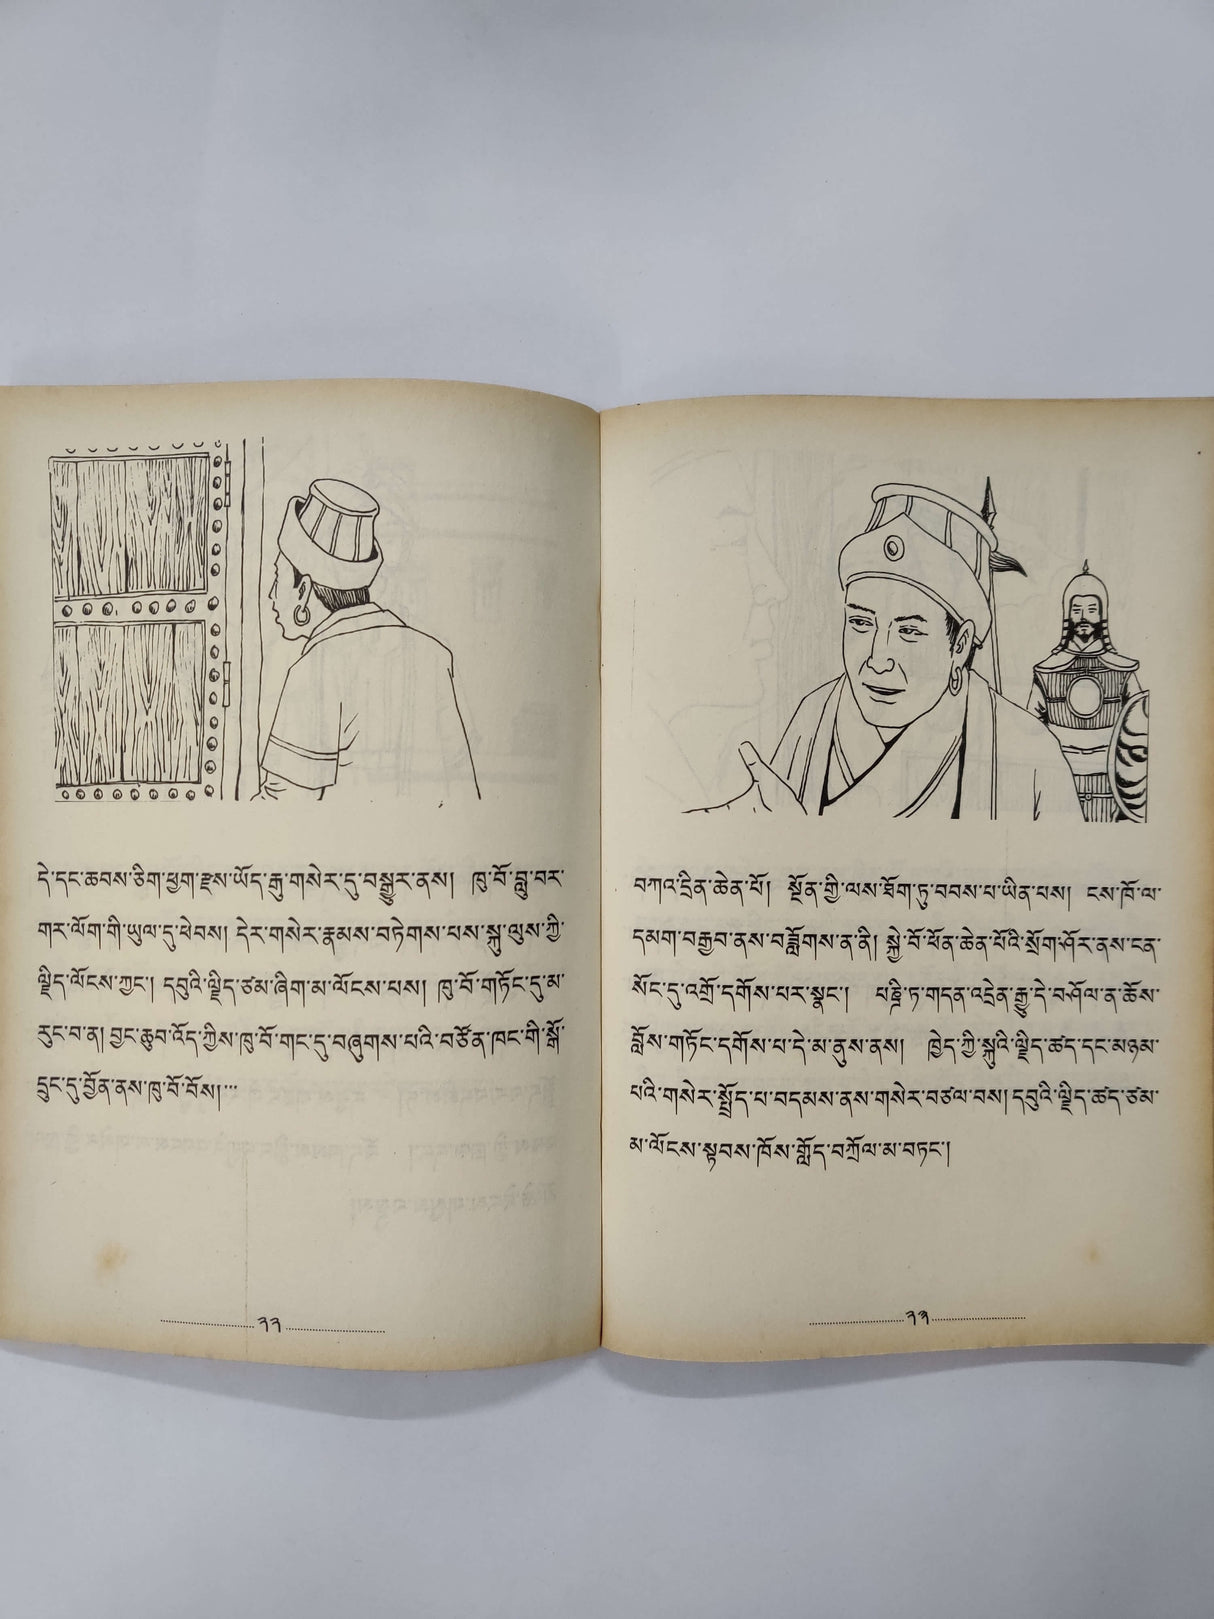 དེ་དང་ཆབས་ཅིག་ཕྱག་རྫས་ཡོད་རྒུ་གསེར་དུ་བསྒྱུར་ནས།  ཁུ་བོ་བླུ་བར་
གར་ལོག་གི་ཡུལ་དུ་ཕེབས། དེར་གསེར་རྣམས་བཏེགས་པས་སྐུ་ལུས་ཀྱི་
ལྗིད་ལོངས་ཀྱང་། དབུའི་ལྗིད་ཙམ་ཞིག་མ་ལོངས་པས། ཁུ་བོ་གཏོང་དུ་མ་
རུང་བ་ན། བྱང་ཆུབ་འོད་ཀྱིས་ཁུ་བོ་གང་དུ་བཞུགས་པའི་བཙོན་ཁང་གི་སྒོ་
དྲུང་དུ་བྱོན་ནས་ཁུ་བོ་བོས།...
༢༢
བཀའ་དྲིན་ཆེན་པོ།  སྔོན་གྱི་ལས་ཐོག་ཏུ་བབས་པ་ཡིན་པས།  ངས་ཁོ་ལ་
དམག་བརྒྱབ་ནས་བཟློགས་ན་ནི། སྐྱེ་བོ་ཕོན་ཆེན་པོའི་སྲོག་ཤོར་ནས་ངན་
སོང་དུ་འགྲོ་དགོས་པར་སྣང་།   པཎྜི་ཏ་གདན་འདྲེན་རྒྱུ་དེ་བཤོལ་ན་ཆོས་
བློས་གཏོང་དགོས་པ་དེ་མ་ནུས་ནས།   ཁྱེད་ཀྱི་སྐུའི་ལྗིད་ཚད་དང་མཉམ་
པའི་གསེར་སྤྲོད་པ་བདམས་ནས་གསེར་བཙལ་བས། དབུའི་ལྗིད་ཚད་ཙམ་
མ་ལོངས་སྟབས་ཁོས་གློད་བཀྲོལ་མ་བཏང་།
༢༣